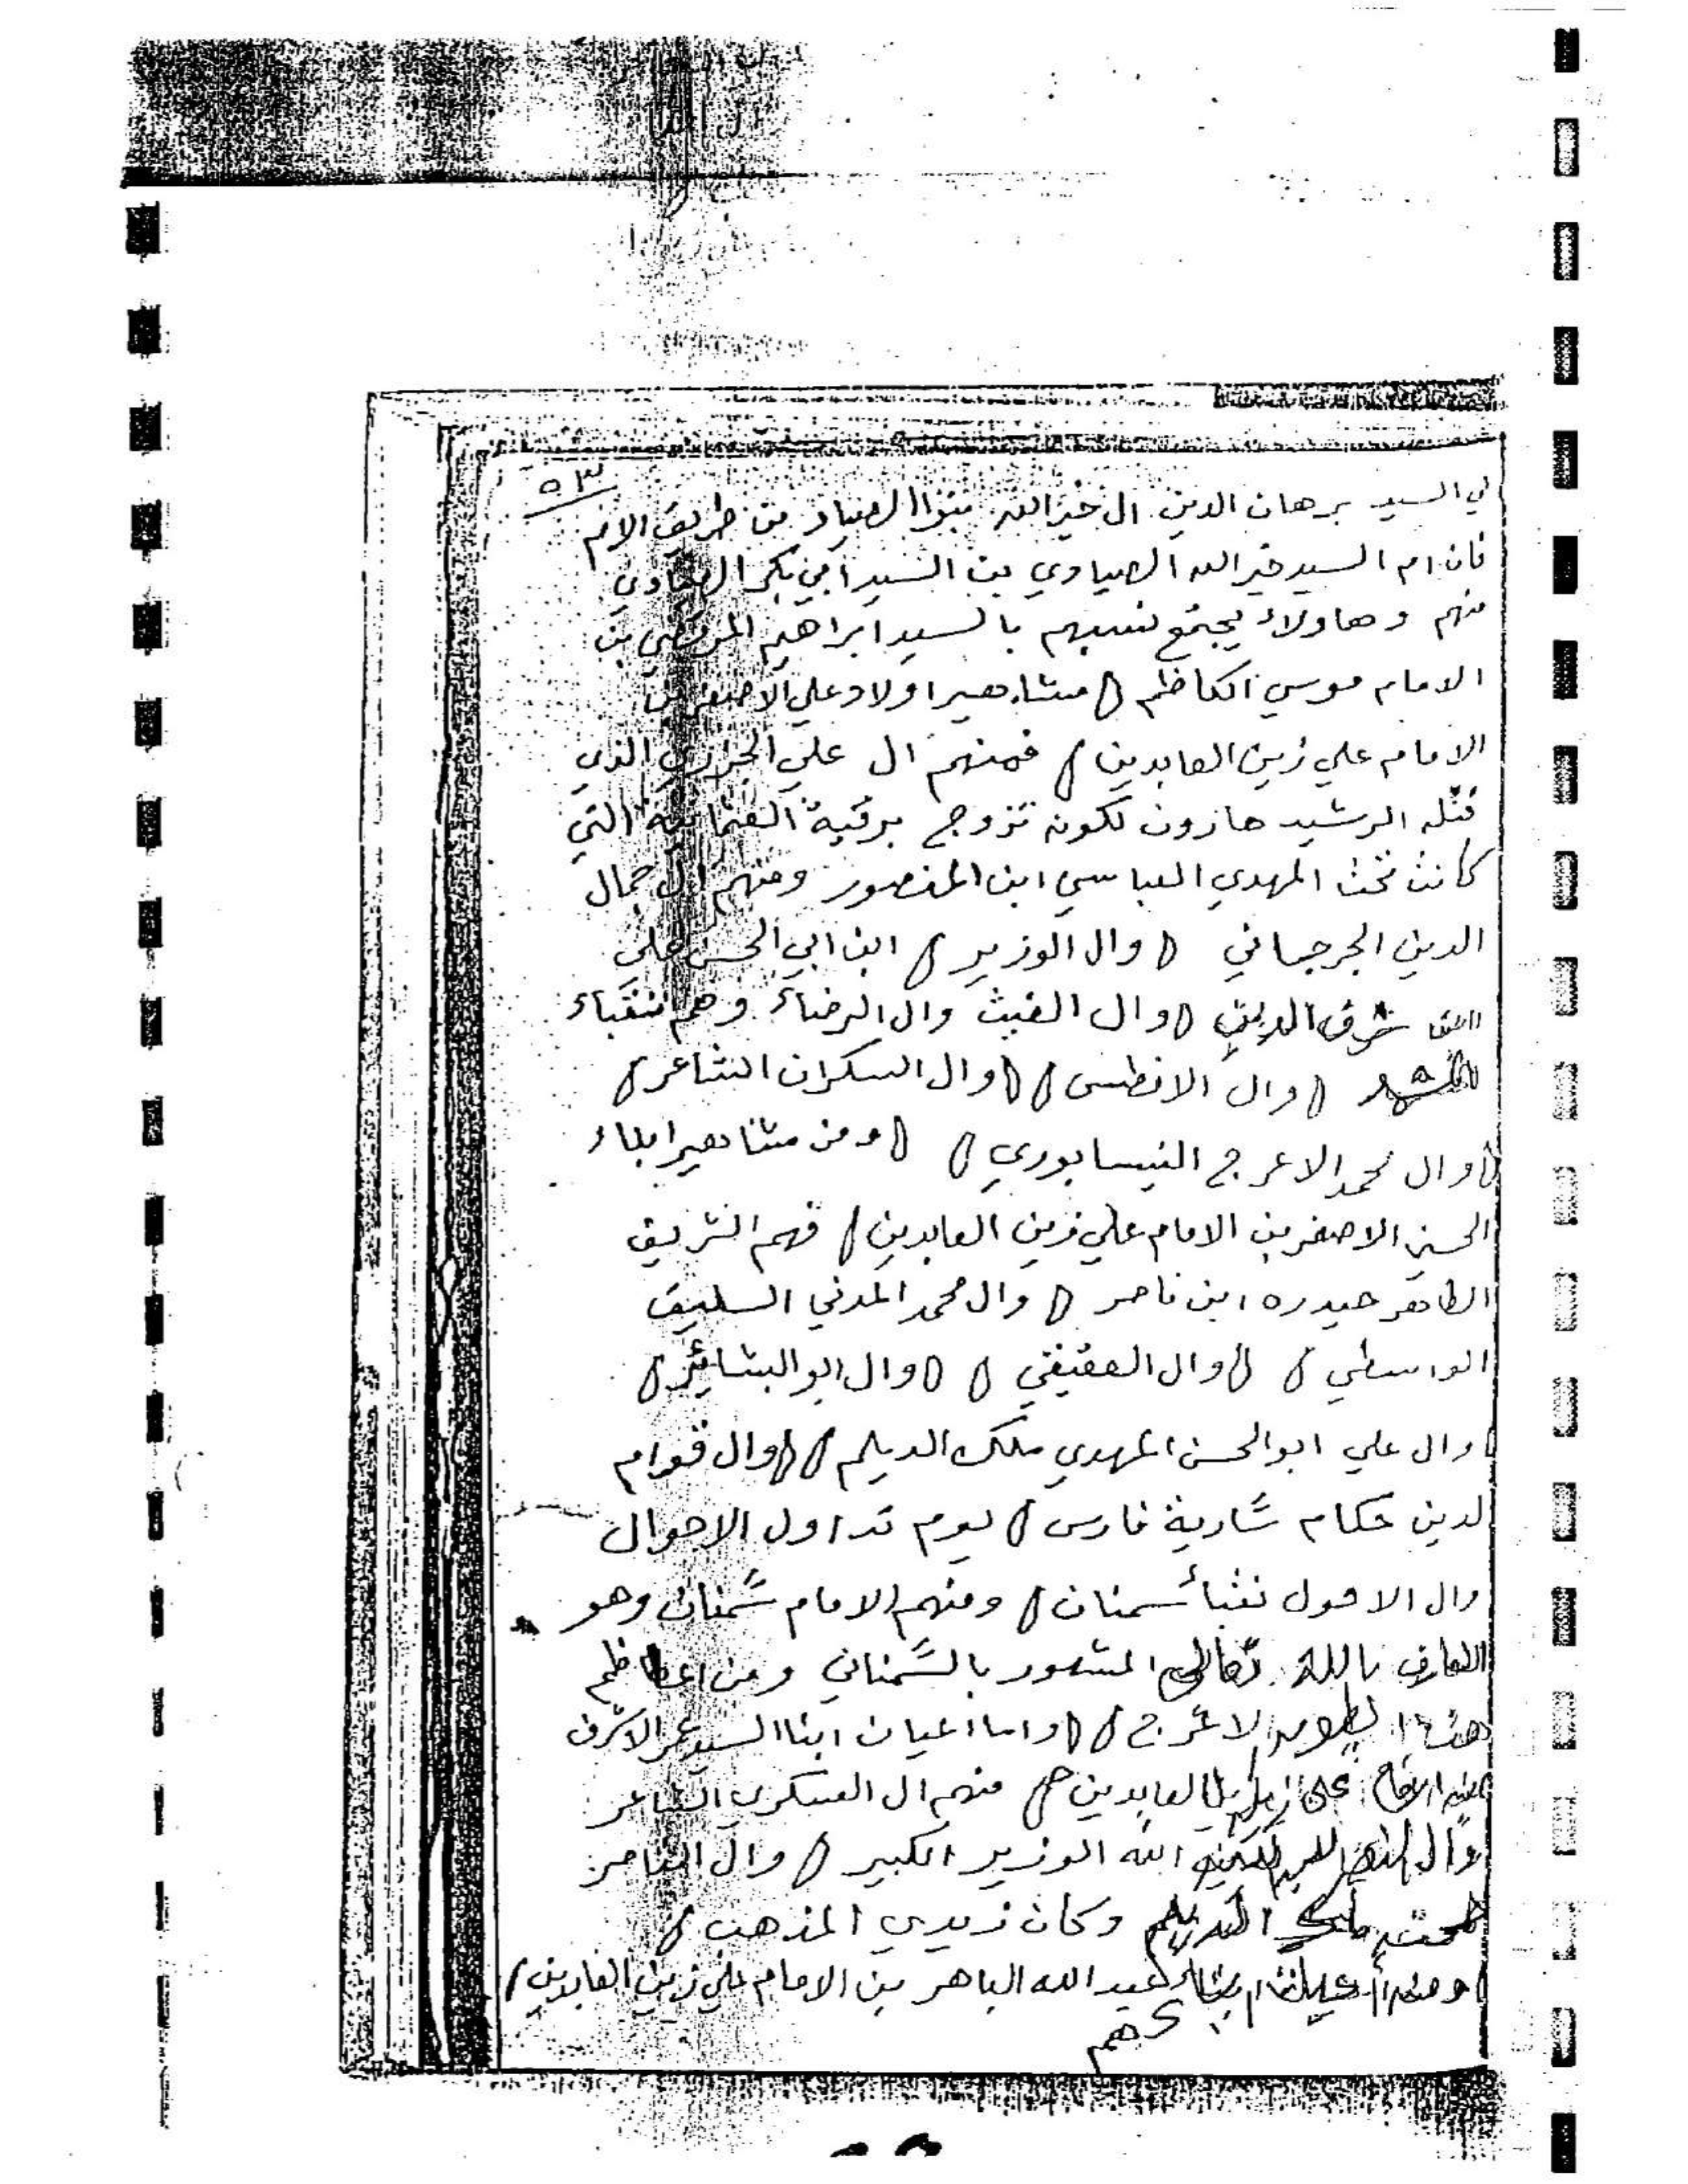 ٥٣
السيد برهان الدين ال خير الله بنوا الصياد من طريق الام
فان ام السيد خير الله الصيادي بن السيد أبي بكر الصيادي
منهم وهاولاء يجتمع نسبهم بالسيد ابراهيم المرتضي بن
الامام موسي الكاظم مشاهير اولاد علي الاصغر بن
الامام علي زين العابدين فمنهم ال علي الجزري الذي
قتله الرشيد هارون لكونه تزوج برقية العثمانية التي
كانت تحت المهدي العباسي ابن المنصور ومنهم ال جمال
الدين الجرجاني وال الوزير ابن ابي الحسن علي
شرف الدين وال الغيث وال الرضاء وهم نقباء
وال الافطس وال السكران الشاعر
وال محمد الاعرج النيسابوري ومن مشاهير ابناء
الحسين الاصغر بن الامام علي زين العابدين فهم الشريف
الطاهر حيدره ابن ناصر وال محمد المدني السليق
الواسطي وال العقيقي وال ابو البشائر
وال علي ابو الحسن المهدي ملك الديلم وال قوام
الدين حكام سارية فارس يوم تداول الاحوال
وال الاحول نقبأ سمنان ومنهم الامام سمنان وهو
العارف بالله تعالى المشهور بالسمناني ومن اعاظم
الاعرج واما اعيان ابنا السيد عمر الاشرف
العابدين منهم ال العسكري الشاعر
الله الوزير الكبير وال الناصر
الديلم وكان زيدي المذهب
عبد الله الباهر بن الامام علي زين العابدين
هم